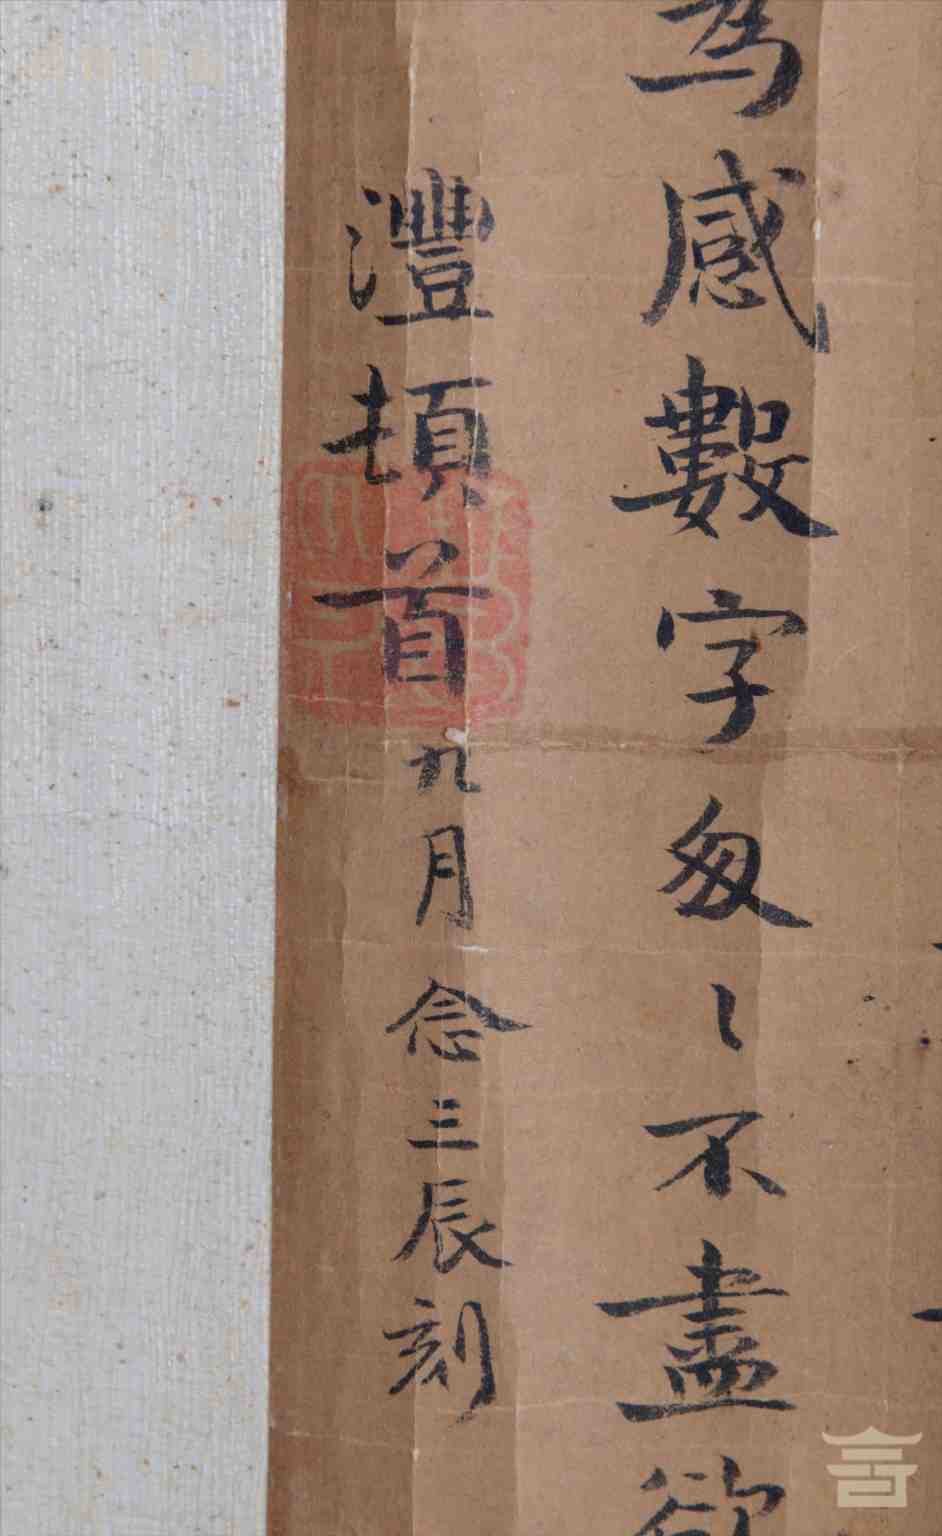 為感數字匆〻不盡欲
灃頓首九月念三辰刻